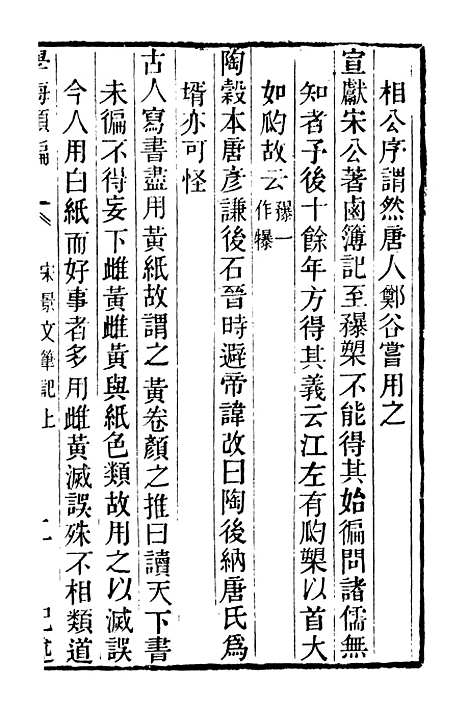 相公序謂然唐人鄭谷嘗用之
宣獻宋公著鹵簿記至䂍槊不能得其始徧問諸儒無
知者予後十餘年方得其義云江左有瓝槊以首大
如瓝故云䂍一作犦
陶穀本唐彦謙後石晉時避帝諱改曰陶後納唐氏爲
壻亦可怪
古人寫書盡用黃紙故謂之黃卷顏之推曰讀天下書
未徧不得妄下雌黃雌黃與紙色類故用之以滅誤
今人用白紙而好事者多用雌黃滅誤殊不相類道
學海類編
宋景文筆記上
二